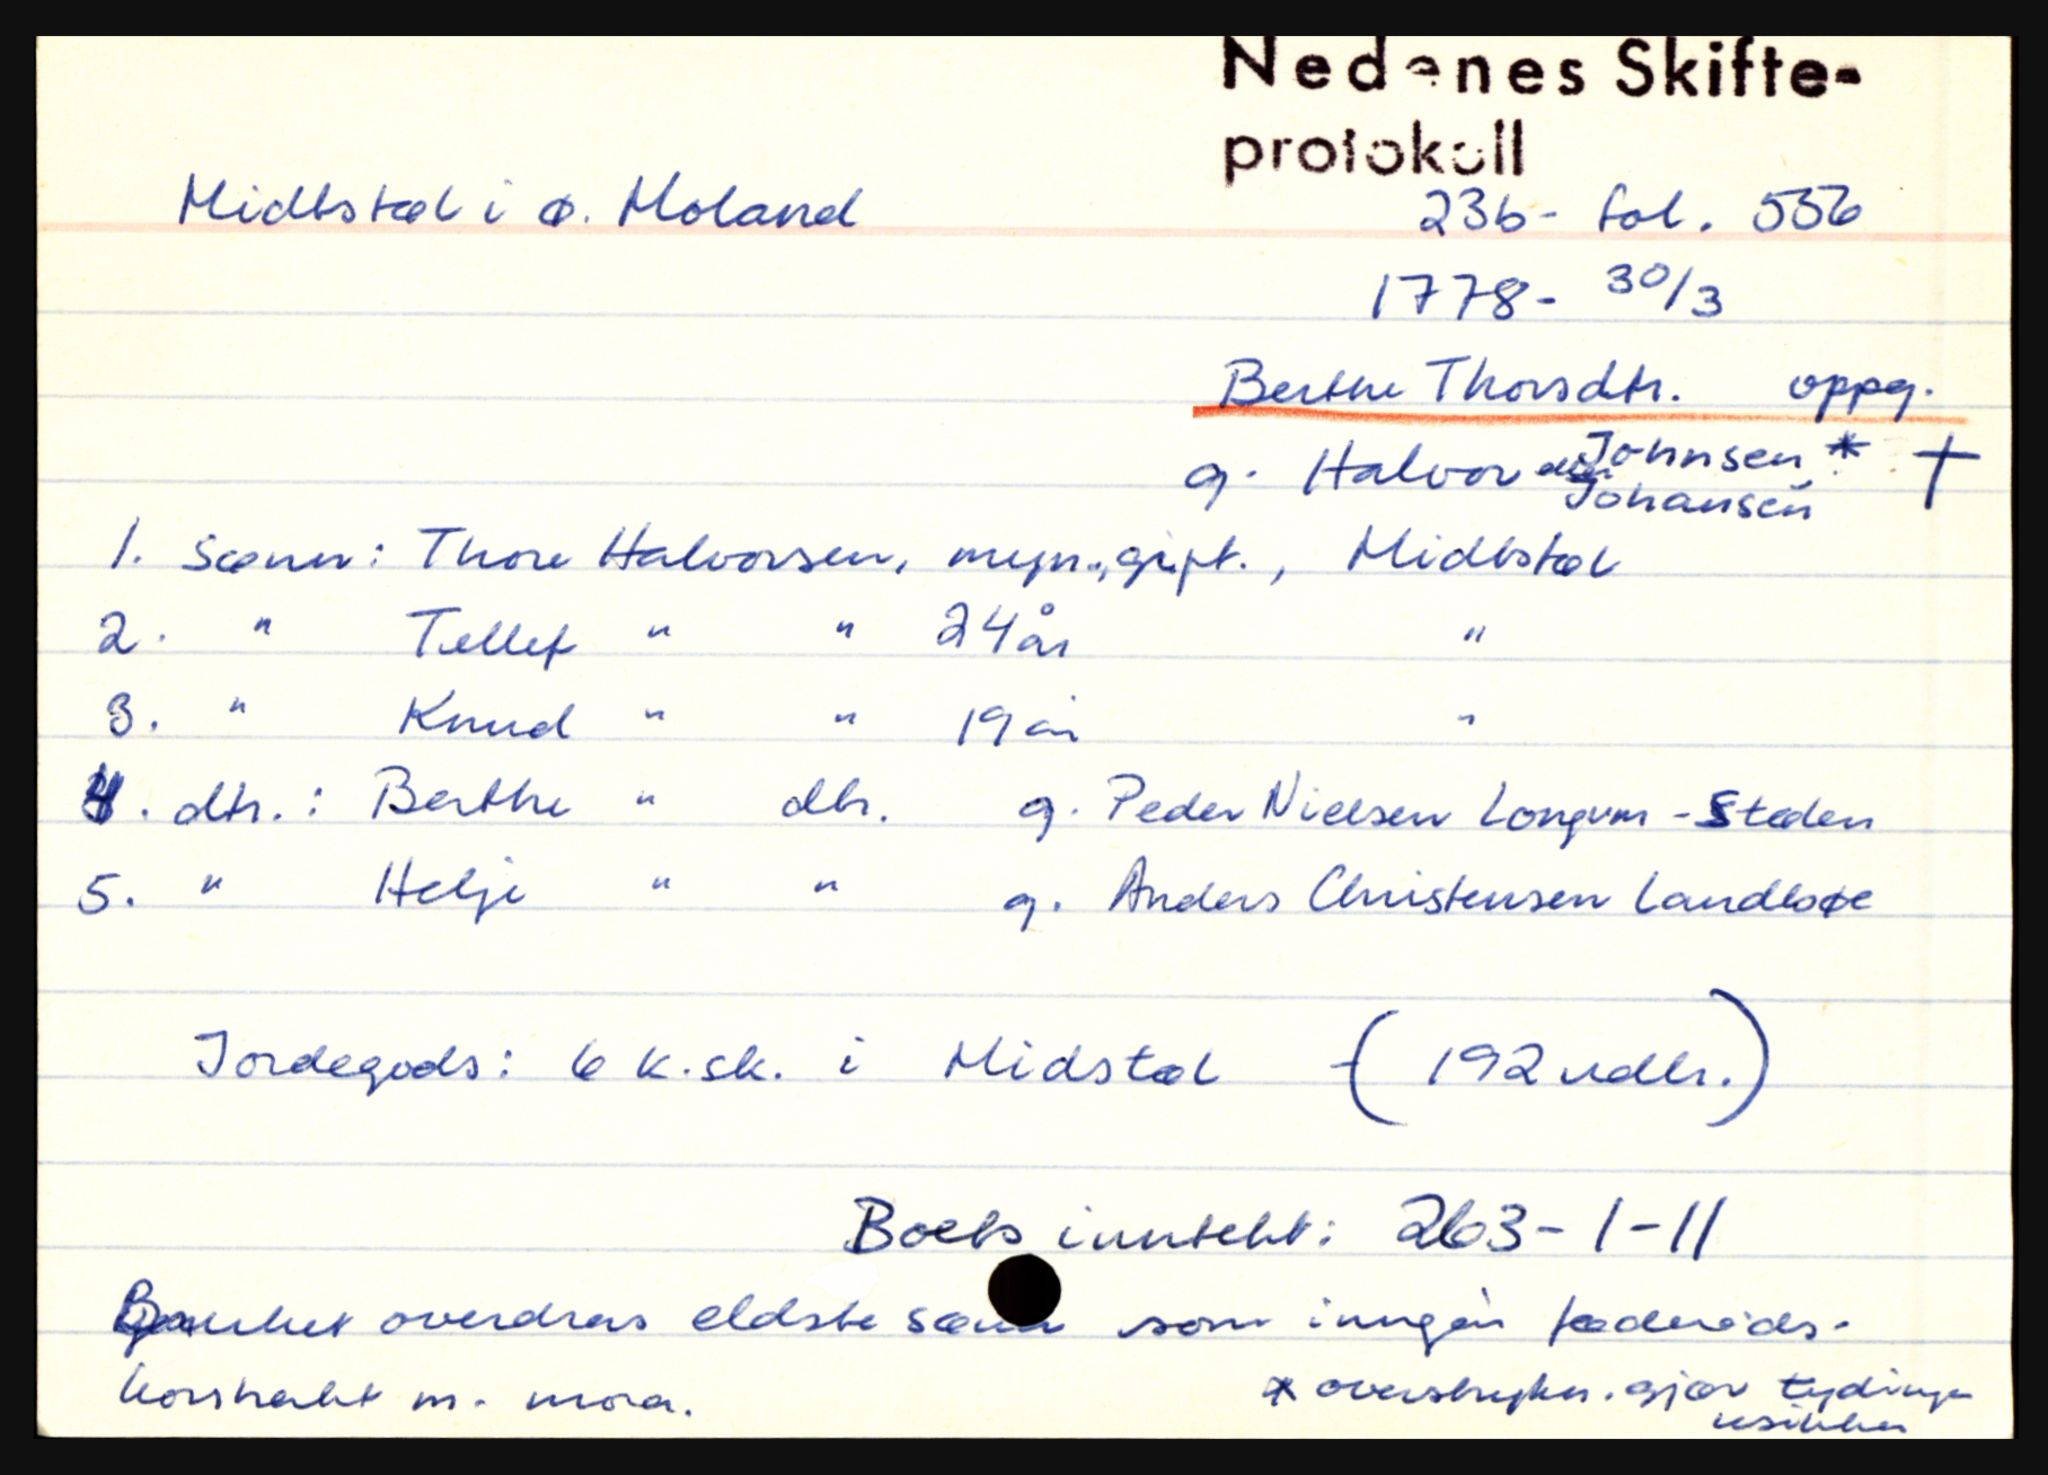 Nedenes Skifte-
protokoll
Midtstøl i ø. Moland 23b - fol. 556
1778 - 30/3
Berthe Thorsdtr. oppg.
g. Halvor Johnsen * †
Johansen
1. Sønn: Thore Halvorsen, myn., gift., Midtstøl
2. " Tellef " " 24 år "
3. " Knud " " 19 år "
4. dtr.: Berthe " dtr. g. Peder Nielsen Longum - Støden
5. " Helje " " g. Anders Christensen Landbøe
Jordegods: 6 k.sk. i Midstøl (192 rdlr.)
Boets inntekt: 263-1-11
overdras eldste sønn som inngår føderåds-
kontrakt m. mora.
* overstryken. gjør tydinga
usikker